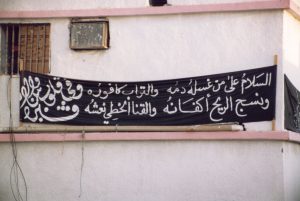 السلام على من غسله دمه والتراب كافوره
ونسج الريح أكفانه والقنا الخطي نعشه
وفي قلوب من والاه
قبره